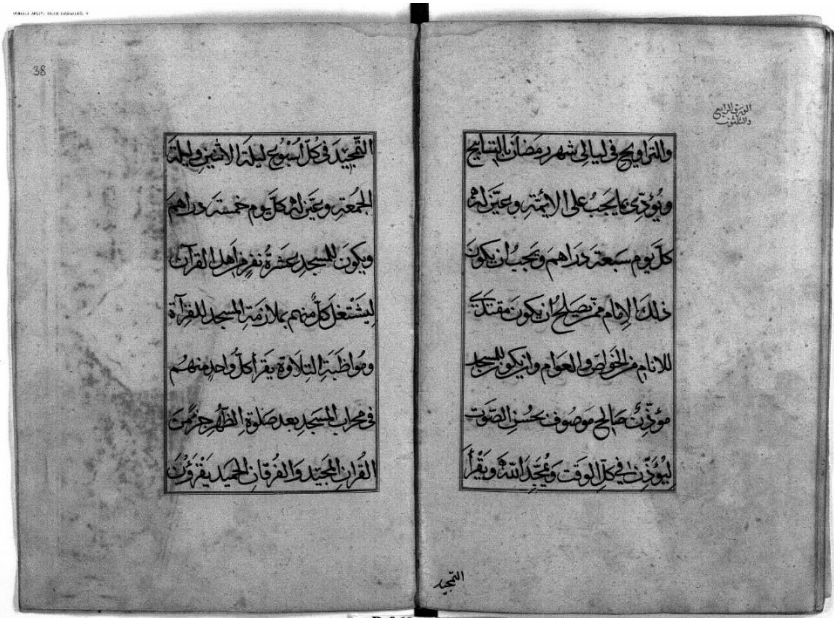 الورق الرابع
والثلثون
والتراويح في ليالي شهر رمضان بالتسابيح
ويؤدي ما يجب على الائمة وعين له
كل يوم سبعة دراهم ويجب ان يكون
ذلك الامام ممن يصلح ان يكون مقتدى
للانام من الخواص والعوام وان يكون للمسجد
مؤذن صالح موصوف بحسن الصوت
ليؤذن في كل الوقت ويمجد الله ويقرأ
التمجيد
38
التمجيد في كل اسبوع ليلة الاثنين وليلة
الجمعة وعين له كل يوم خمسة دراهم
ويكون للمسجد عشرة نفر من اهل القرآن
ليشتغل كل منهم بملازمة المسجد للقرآة
ومواظبة التلاوة يقرأ كل واحد منهم
في محراب المسجد بعد صلوة الظهر جزء من
القران المجيد والفرقان الحميد يقرؤن